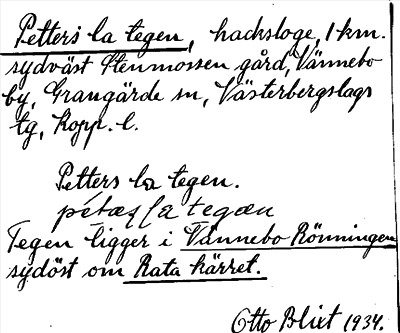 Petters la tegen, hacksloge, 1 km.
sydväst Stenmossen gård, Vännebo
by, Grangärde sn, Västerbergslags
tg, Kopp. l.
Petters la tegen.
Tegen ligger i Vännebo Rönningen
sydöst om Rata kärret.
Otto Blixt 1934.